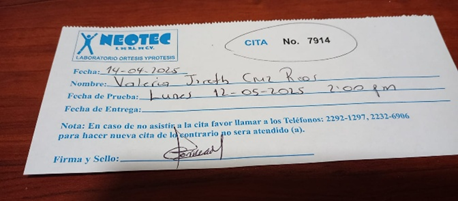 NEOTEC
LABORATORIO ORTESIS Y PROTESIS
CITA No. 7914
Fecha: 14-04-2025
Nombre: Valeria Jireth Cruz Rios
Fecha de Prueba: Lunes 12-05-2025 2:00 pm
Fecha de Entrega:
Nota: En caso de no asistir a la cita favor llamar a los Teléfonos: 2292-1297, 2232-6906
para hacer nueva cita de lo contrario no sera atendido (a).
Firma y Sello: